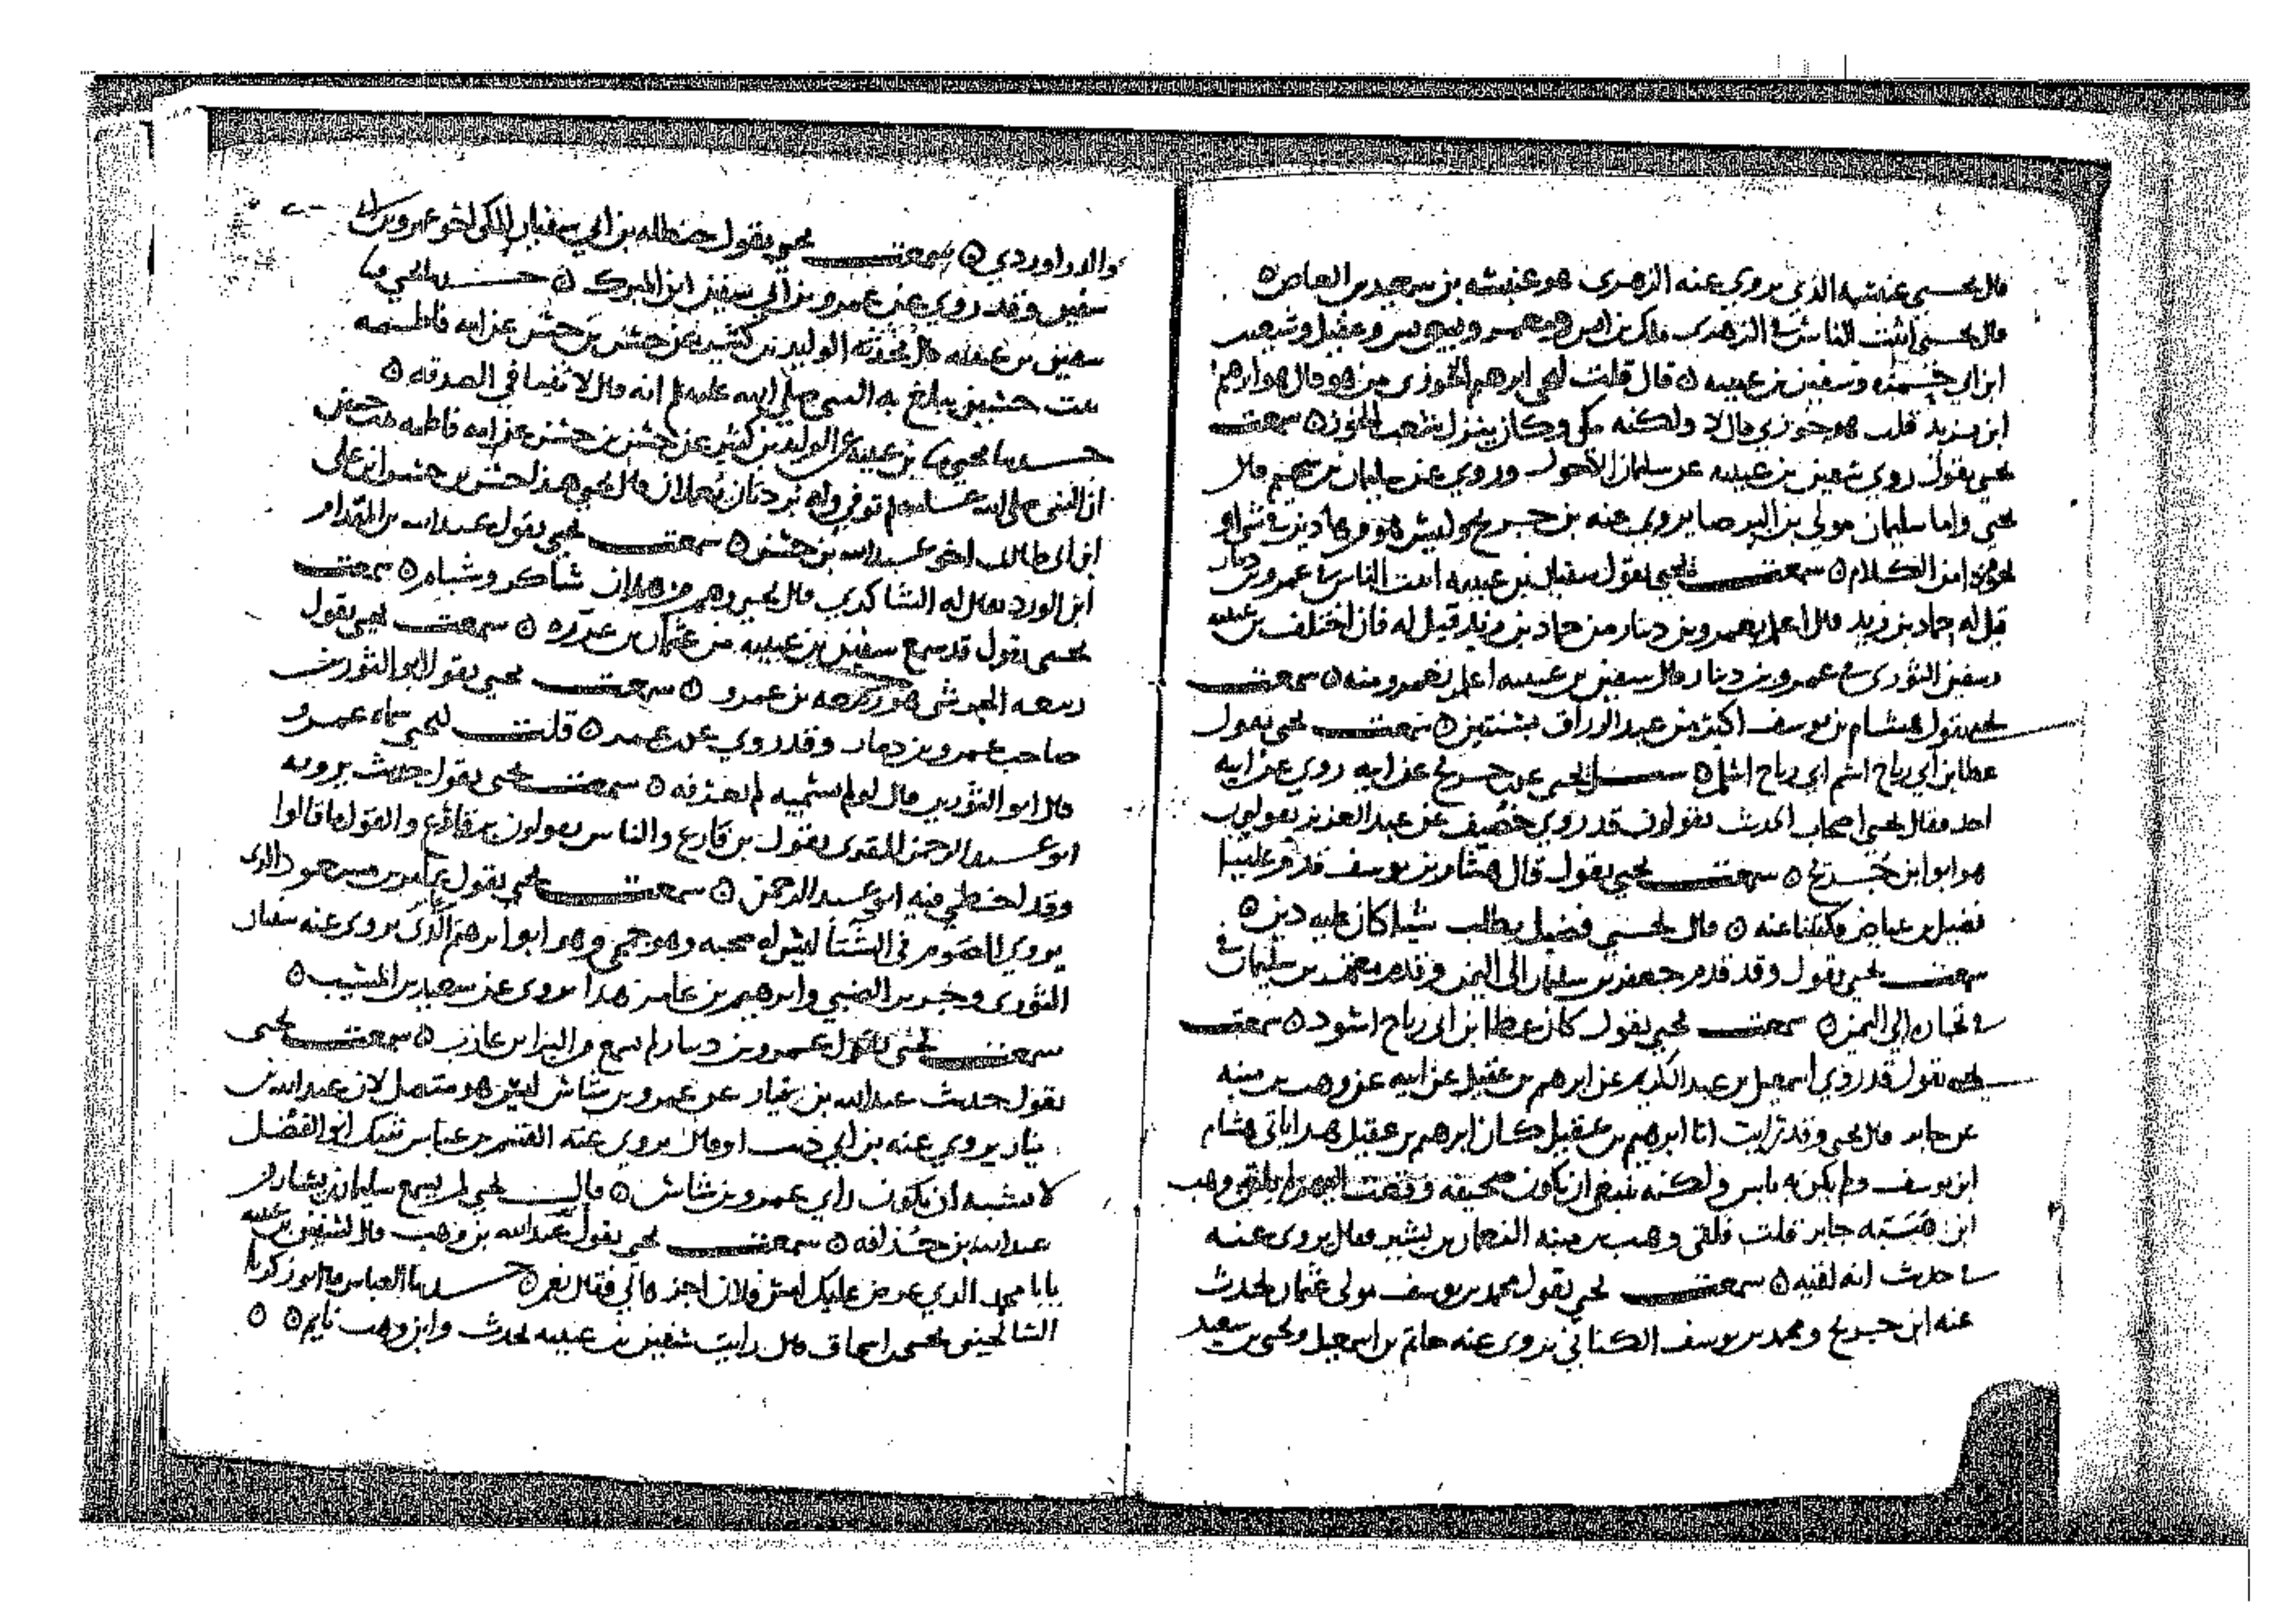 قال يحيى عنبسة الذي يروي عنه الزهرى هو عنبسه بن سعيد بن العاص ه
قال يحيى اثبت الناس في الزهري ملك بن انس ومعمر ويونس وعقيل وشعيب
ابن ابي حمزه وسفين بن عيينه ه قال قلت ليحيى ابرهيم الخوزى من هو قال هو ابرهيم
ابن يزيد قلت هو خوزي قال لا ولكنه مكي وكان ينزل شعب الخوز ه سمعت
يحيى يقول روى سفين بن عيينه عن سليمان الاحول وروي عن سليمان بن سحيم قال
يحيى واما سليمان مولى بن البرصا يروي عنه بن جريج وليس هو
من الكلام ه سمعت يحيى يقول سفيان بن عيينه اثبت الناس في عمرو بن دينار
قيل له حماد بن زيد قال اعلم بعمرو بن دينار من حماد بن زيد قيل له فان اختلف بن عيينه
وسفين الثوري في عمرو بن دينار قال سفين بن عيينه اعلم بعمرو منه ه سمعت
يحيى يقول هشام بن يوسف اكبر من عبد الرزاق بسنتين ه سمعت يحيى يقول
عطا بن ابي رباح اسم ابي رباح اسلم ه سئل يحيى عن جريج عن ابيه روي عن ابيه
احد فقال يحيى اصحاب الحديث يقولون قد روي خصيف عن عبد العزيز يقولون
هو ابو ابن جريج ه سمعت يحيى يقول قال هشام بن يوسف قدم علينا
فضيل بن عياض فكتبنا عنه ه قال يحيى فضيل يطلب شيا كان عليه دين ه
سمعت يحيى يقول وقد قدم جعفر بن سليمان الى اليمن وقدم معتمر بن سليمان
في تجاره الى اليمن ه سمعت يحيى يقول كان عطا بن ابي رباح اسود ه سمعت
يحيى يقول قد روى اسمعيل بن عبد الكريم عن ابرهيم بن عقيل عن ابيه عن وهب بن منبه
عن جابر قال يحيى وقد رايت انا ابرهيم بن عقيل كان ابرهيم بن عقيل هذا ياتي هشام
ابن يوسف ولم يكن به باس ولكنه ينبغي ان تكون صحيفه وقعت اليهم لم يلق وهب
ابن منبه جابر قلت فلقي وهب بن منبه النعمان بن بشير فقال يروى عنه
في حديث انه لقيه ه سمعت يحيى يقول محمد بن يوسف مولى عثمان يحدث
عنه ابن جريج ومحمد بن يوسف الكناني يروى عنه حاتم بن اسمعيل ويحيى بن سعيد
والدراوردي ه سمعت يحيى يقول حنظله بن ابي سفيان المكي اخو عمرو بن ابي
سفين وقد روي عن عمرو بن ابي سفين ابن المبرك ه حدثنا يحيى نا
سفين بن عيينه قال حدثنيه الوليد بن كثير عن حسن بن حسن عن امه فاطمه
بنت حسين يبلغ به النبي صلى الله عليه وسلم انه قال لا ثنيا في الصدقه ه
حدثنا يحيى نا بن عيينه عن الوليد بن كثير عن حسن بن حسن عن امه فاطمه بنت حسين
ان النبي صلى الله عليه وسلم قال يحيى هذا حسن بن حسن ابن علي
ابن ابي طالب اخو عبد الله بن حسن ه سمعت يحيى يقول عبد الله بن المقدام
ابن الورد يقال له الشاكري قال يحيى وهم من همدان شاكر وشبام ه سمعت
يحيى يقول قد سمع سفين بن عيينه من عثمان بن عروه ه سمعت يحيى يقول
ربيعه الجرشي هو ربيعه بن عمرو ه سمعت يحيى يقول ابو الثورين
صاحب عمرو بن دينار وقد روي عن عمر ه قلت ليحيى سماه عمرو
قال ابو الثورين قال لو لم يسميه لم نعرفه ه سمعت يحيى يقول حديث يرويه
ابو عبد الرحمن المقرى يقول بن قارع والناس يقولون بن قانع والقول ما قالوا
وقد اخطى فيه ابو عبد الرحمن ه سمعت يحيى يقول عامر بن مسعود الذى
يروي الصوم في الشتا ليس له صحبه وهو جمحي وهو ابو ابرهيم الذى يروى عنه سفيان
الثوري وجرير الضبي وابرهيم بن عامر هذا يروى عن سعيد بن المسيب ه
سمعت يحيى يقول عمرو بن دينار لم يسمع من البرا بن عازب ه سمعت يحيى
يقول حديث عبد الله بن نيار عن عمرو بن شاس ليس هو متصل لان عبد الله بن
نيار يروي عنه بن ابي ذيب او قال يروي عنه القسم بن عباس شك ابو الفضل
لا يشبه ان يكون راي عمرو بن شاس ه قال يحيى لم يسمع سليمان بن يسار من
عبد الله بن حذافه ه سمعت يحيى يقول عبد الله بن وهب قال لسفين بن عيينه
يابا محمد الذي عرض عليك امس فلان اجزه لي فقال نعم ه حدثنا العباس قال ابو زكريا
السالحيني يحيى بن اسحاق قال رايت سفين بن عيينه يحدث وابن وهب نايم ه ه